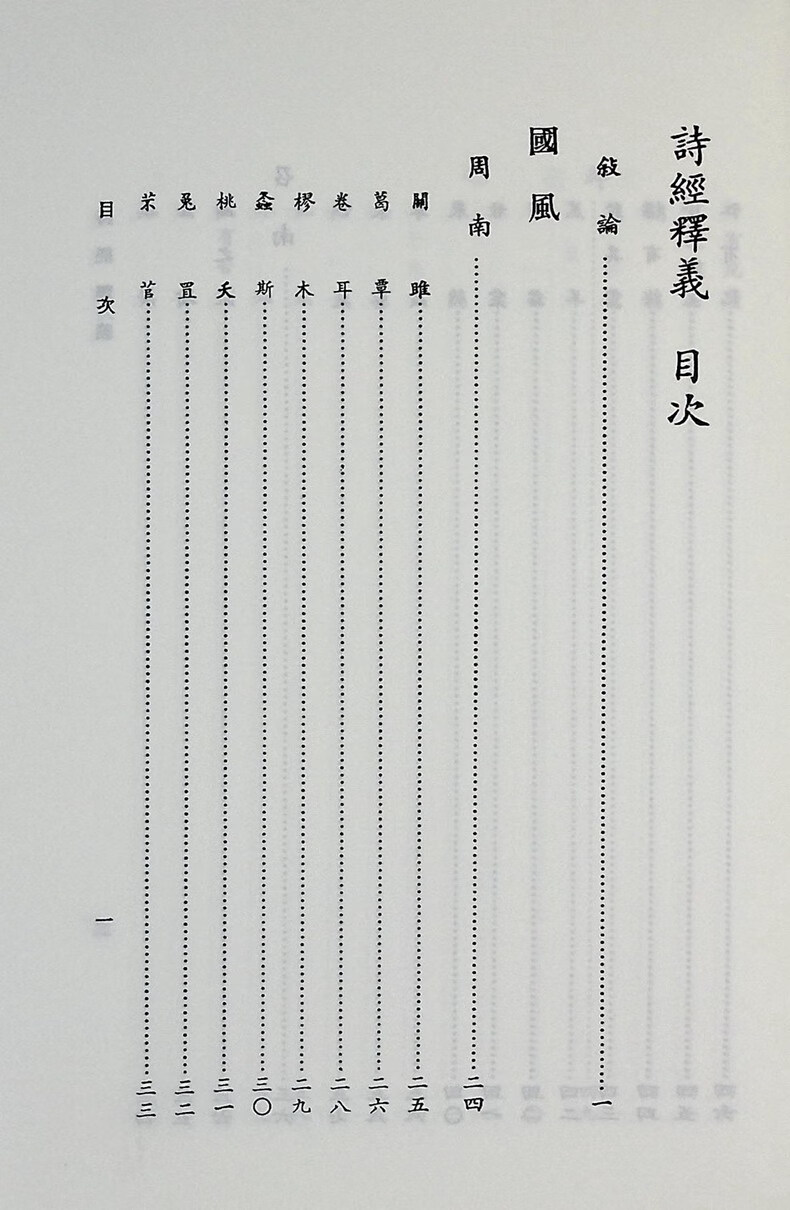 詩經釋義 目次
敍論……一
國風
周南……二四
關雎……二五
葛覃……二六
卷耳……二八
樛木……二九
螽斯……三〇
桃夭……三一
兎罝……三二
芣苢……三三
目次 一